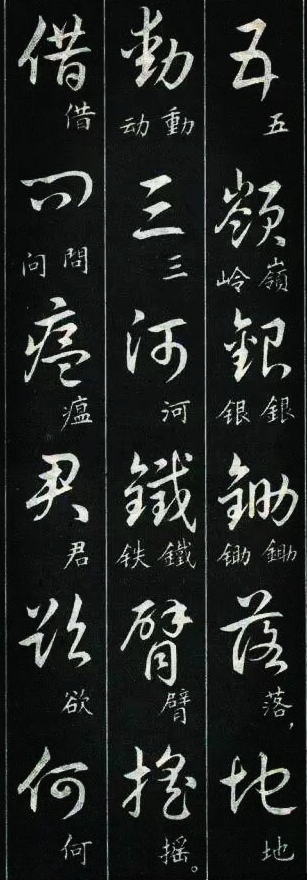 五嶺銀鋤落地
五 嶺岭 銀银 鋤锄 落, 地
動三河鐵臂搖
動动 三 河 鐵铁 臂 摇。
借問瘟君欲何
借 問问 瘟 君 欲 何